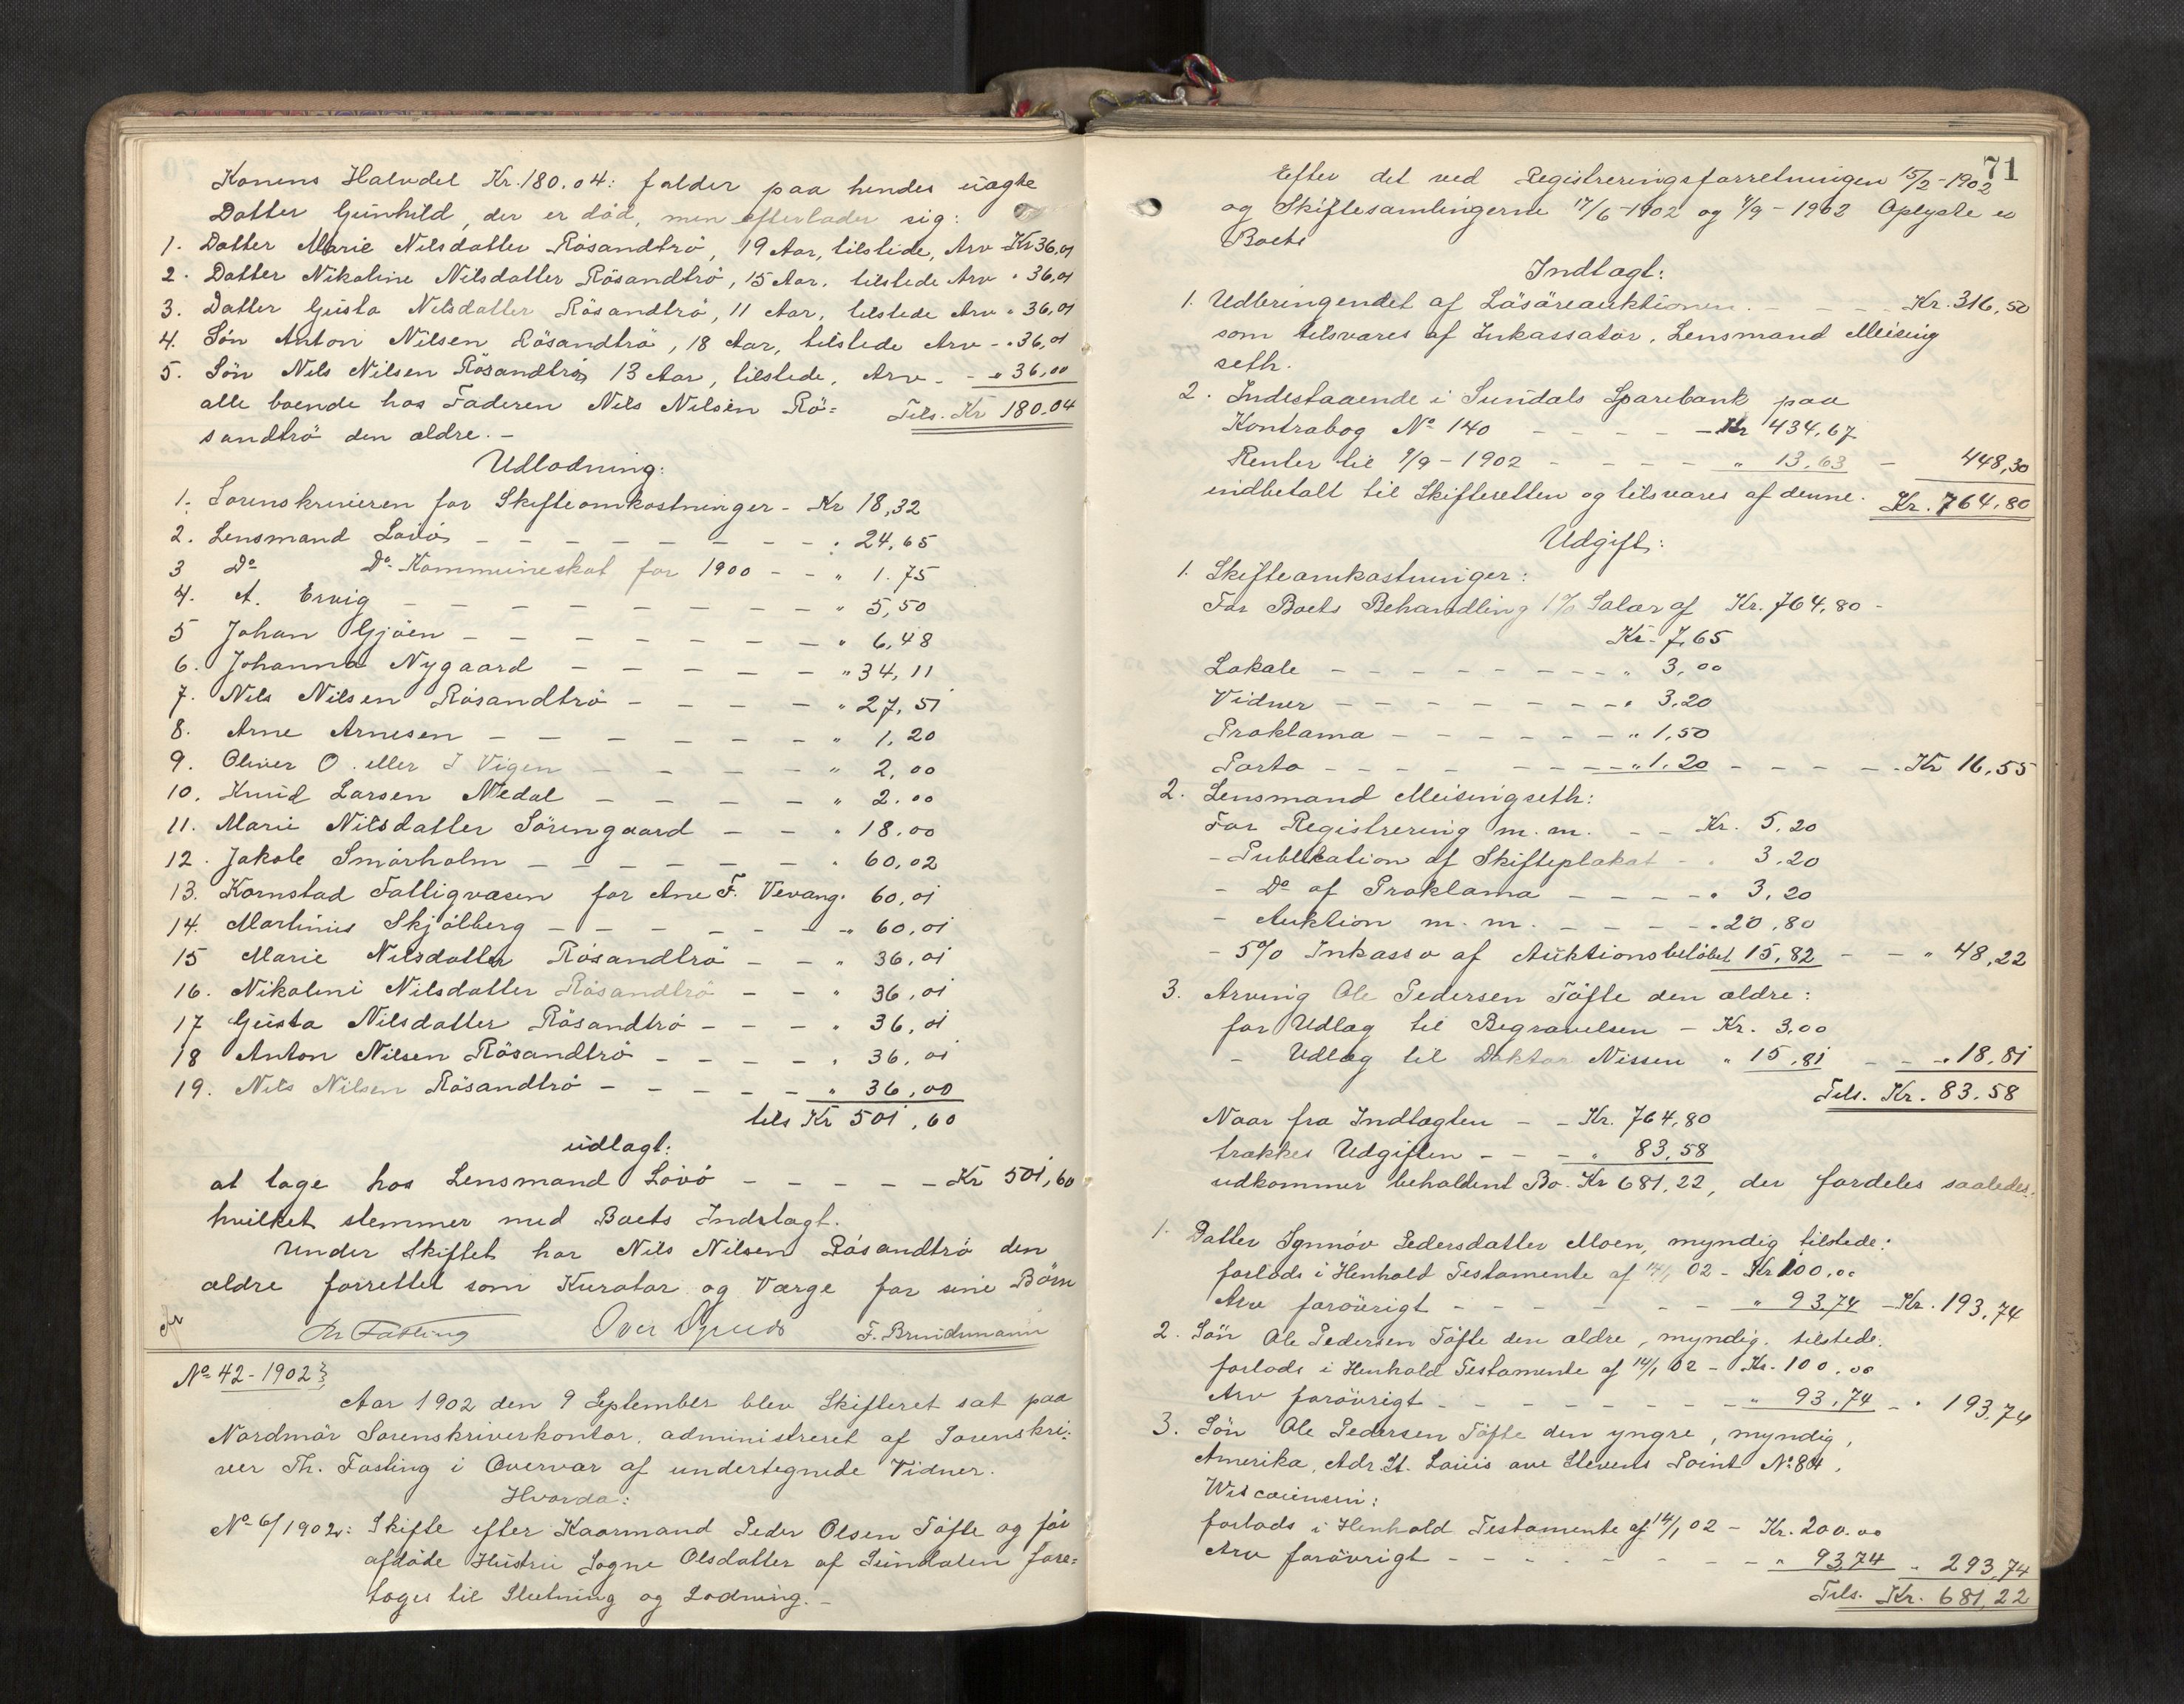 Konens Halvdel Kr. 180.04: falder paa hendes uægte
Datter Gunhild, der er död, men efterlader sig:
1. Datter Marie Nilsdatter Rösandtrö, 19 Aar, tilstede, Arv - Kr 36,01
2. Datter Nikoline Nilsdatter Rösandtrö, 15 Aar, tilstede Arv " 36,01
3. Datter Gusta Nilsdatter Rösandtrö, 11 Aar, tilstede Arv " 36,01
4. Sön Anton Nilsen Rösandtrö, 18 Aar, tilstede Arv - " 36,01
5. Sön Nils Nilsen Rösandtrö 13 Aar, tilstede, Arv - - " 36,00
alle boende hos Faderen Nils Nilsen Rö= Tils. Kr 180.04
sandtrö den ældre. -
Udlodning:
1. Sorenskriveren for Skifteomkostninger - Kr 18,32
2. Lensmand Lövö - - - - - - - - " 24,65
3 Do Do Kommuneskat for 1900 - - " 1.75
4. A. Ervig - - - - - - - - - " 5,50
5 Johan Gjöen - - - - - - - " 6,48
6. Johanna Nygaard - - - - - " 34,11
7. Nils Nilsen Rösandtrö - - - - " 27,51
8. Arne Arnesen - - - - - - - " 1,20
9. Oliver O. eller I Vigen - - - - " 2,00
10. Knud Larsen Nedal - - - - " 2.00
11. Marie Nilsdatter Sörengaard - - " 18.00
12. Jakob Smörholm - - - - - - " 60,02
13. Kornstad Fattigvæsen for Ane F. Vevang " 60,01
14. Martinus Skjölberg - - - - - - - " 60,01
15 Marie Nilsdatter Rösandtrö - - " 36,01
16. Nikoline Nilsdatter Rösandtrö - - " 36,01
17 Gusta Nilsdatter Rösandtrö - - - " 36,01
18 Anton Nilsen Rösandtrö - - - - " 36,01
19. Nils Nilsen Rösandtrö - - - - " 36,00
tils Kr 501,60
udlagt:
at tage hos Lensmand Lövö - - - - - Kr 501,60
hvilket stemmer med Boets Indtægt.
Under Skiftet har Nils Nilsen Rösandtrö den
ældre forrettet som Kurator og Værge for sine Börn
Th Fasting F. Brundsmann
No 42-1902
Aar 1902 den 9 September blev Skifteret sat paa
Nordmör Sorenskriverkontor, administreret af Sorenskri-
ver Th. Fasting i Overvær af undertegnede Vidner.
Hvorda:
No 6/1902: Skifte efter Kaarmand Peder Olsen Töfte og för
afdöde Hustru Sogne Olsdatter af Sundalen fore=
tages til Slutning og Lodning. -
71
Efter det ved Registreringsforretningen 15/2-1902
og Skiftesamlingerne 17/6-1902 og 9/9-1902 Oplyste er
Boets
Indtægt:
1. Udbringendet af Lösöreauktionen. - - - Kr. 316,50
som tilsvares af Inkassator, Lensmand Meising
seth.
2. Indestaaende i Sundals Sparebank paa
Kontrabog No 140 - - - - - Kr 434,67
Renter til 9/9-1902 - - - - " 13,63 - 448,30
indbetalt til Skifteretten og tilsvares af denne. Kr. 764,80
Udgift:
1. Skifteomkostninger:
For Boets Behandling 1% Salær af Kr. 764,80 -
Kr. 7,65
Lokale - - - - - - - - " 3,00
Vidner - - - - - - - - " 3,20
Proklama - - - - - - - " 1,50
Porto - - - - - - - - " 1,20 - - - - Kr 16,55
2. Lensmand Meisingseth:
For Registrering m. m. - - Kr. 5,20
- Publikation af Skifteplakat - " 3,20
- Do af Proklama - - - - " 3,20
- Auktion m. m. - - - - - " 20,80
- 5% Inkasso af Auktionsbelöbet 15,82 - - " 48,22
3. Arving Ole Pedersen Töfte den ældre:
for Udlæg til Begravelsen - Kr. 3,00
- Udlæg til Doktor Nissen " 15,81 - - " 18,81
Tils. Kr. 83,58
Naar fra Indtægten - - Kr. 764,80
trækkes Udgiften - - - " 83,58
udkommer beholdent Bo - Kr 681,22, der fordeles saaledes:
1. Datter Synnöv Pedersdatter Moen, myndig, tilstede:
forlods i Henhold Testamente af 14/1 02 - Kr 100,00
Arv forövrigt - - - - - - - " 93,74 - Kr. 193,74
2. Sön Ole Pedersen Töfte den ældre, myndig, tilstede:
forlods i Henhold Testamente af 14/1 02 - Kr. 100,00
Arv forövrigt - - - - - - - - " 93,74 - " 193,74
3. Sön Ole Pedersen Töfte den yngre, myndig,
Amerika, Adr. St. Louis ave Stevens Point No 804,
Wiscounsin:
forlods i Henhold Testamente af 14/1 02 - Kr. 200.00
Arv forövrigt - - - - - - - - " 93,74 " 293,74
Tils. Kr. 681,22